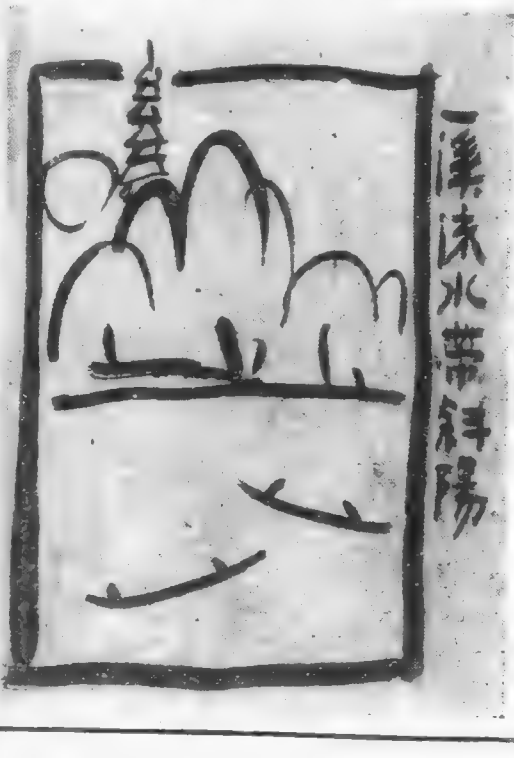 一溪流水帶斜陽